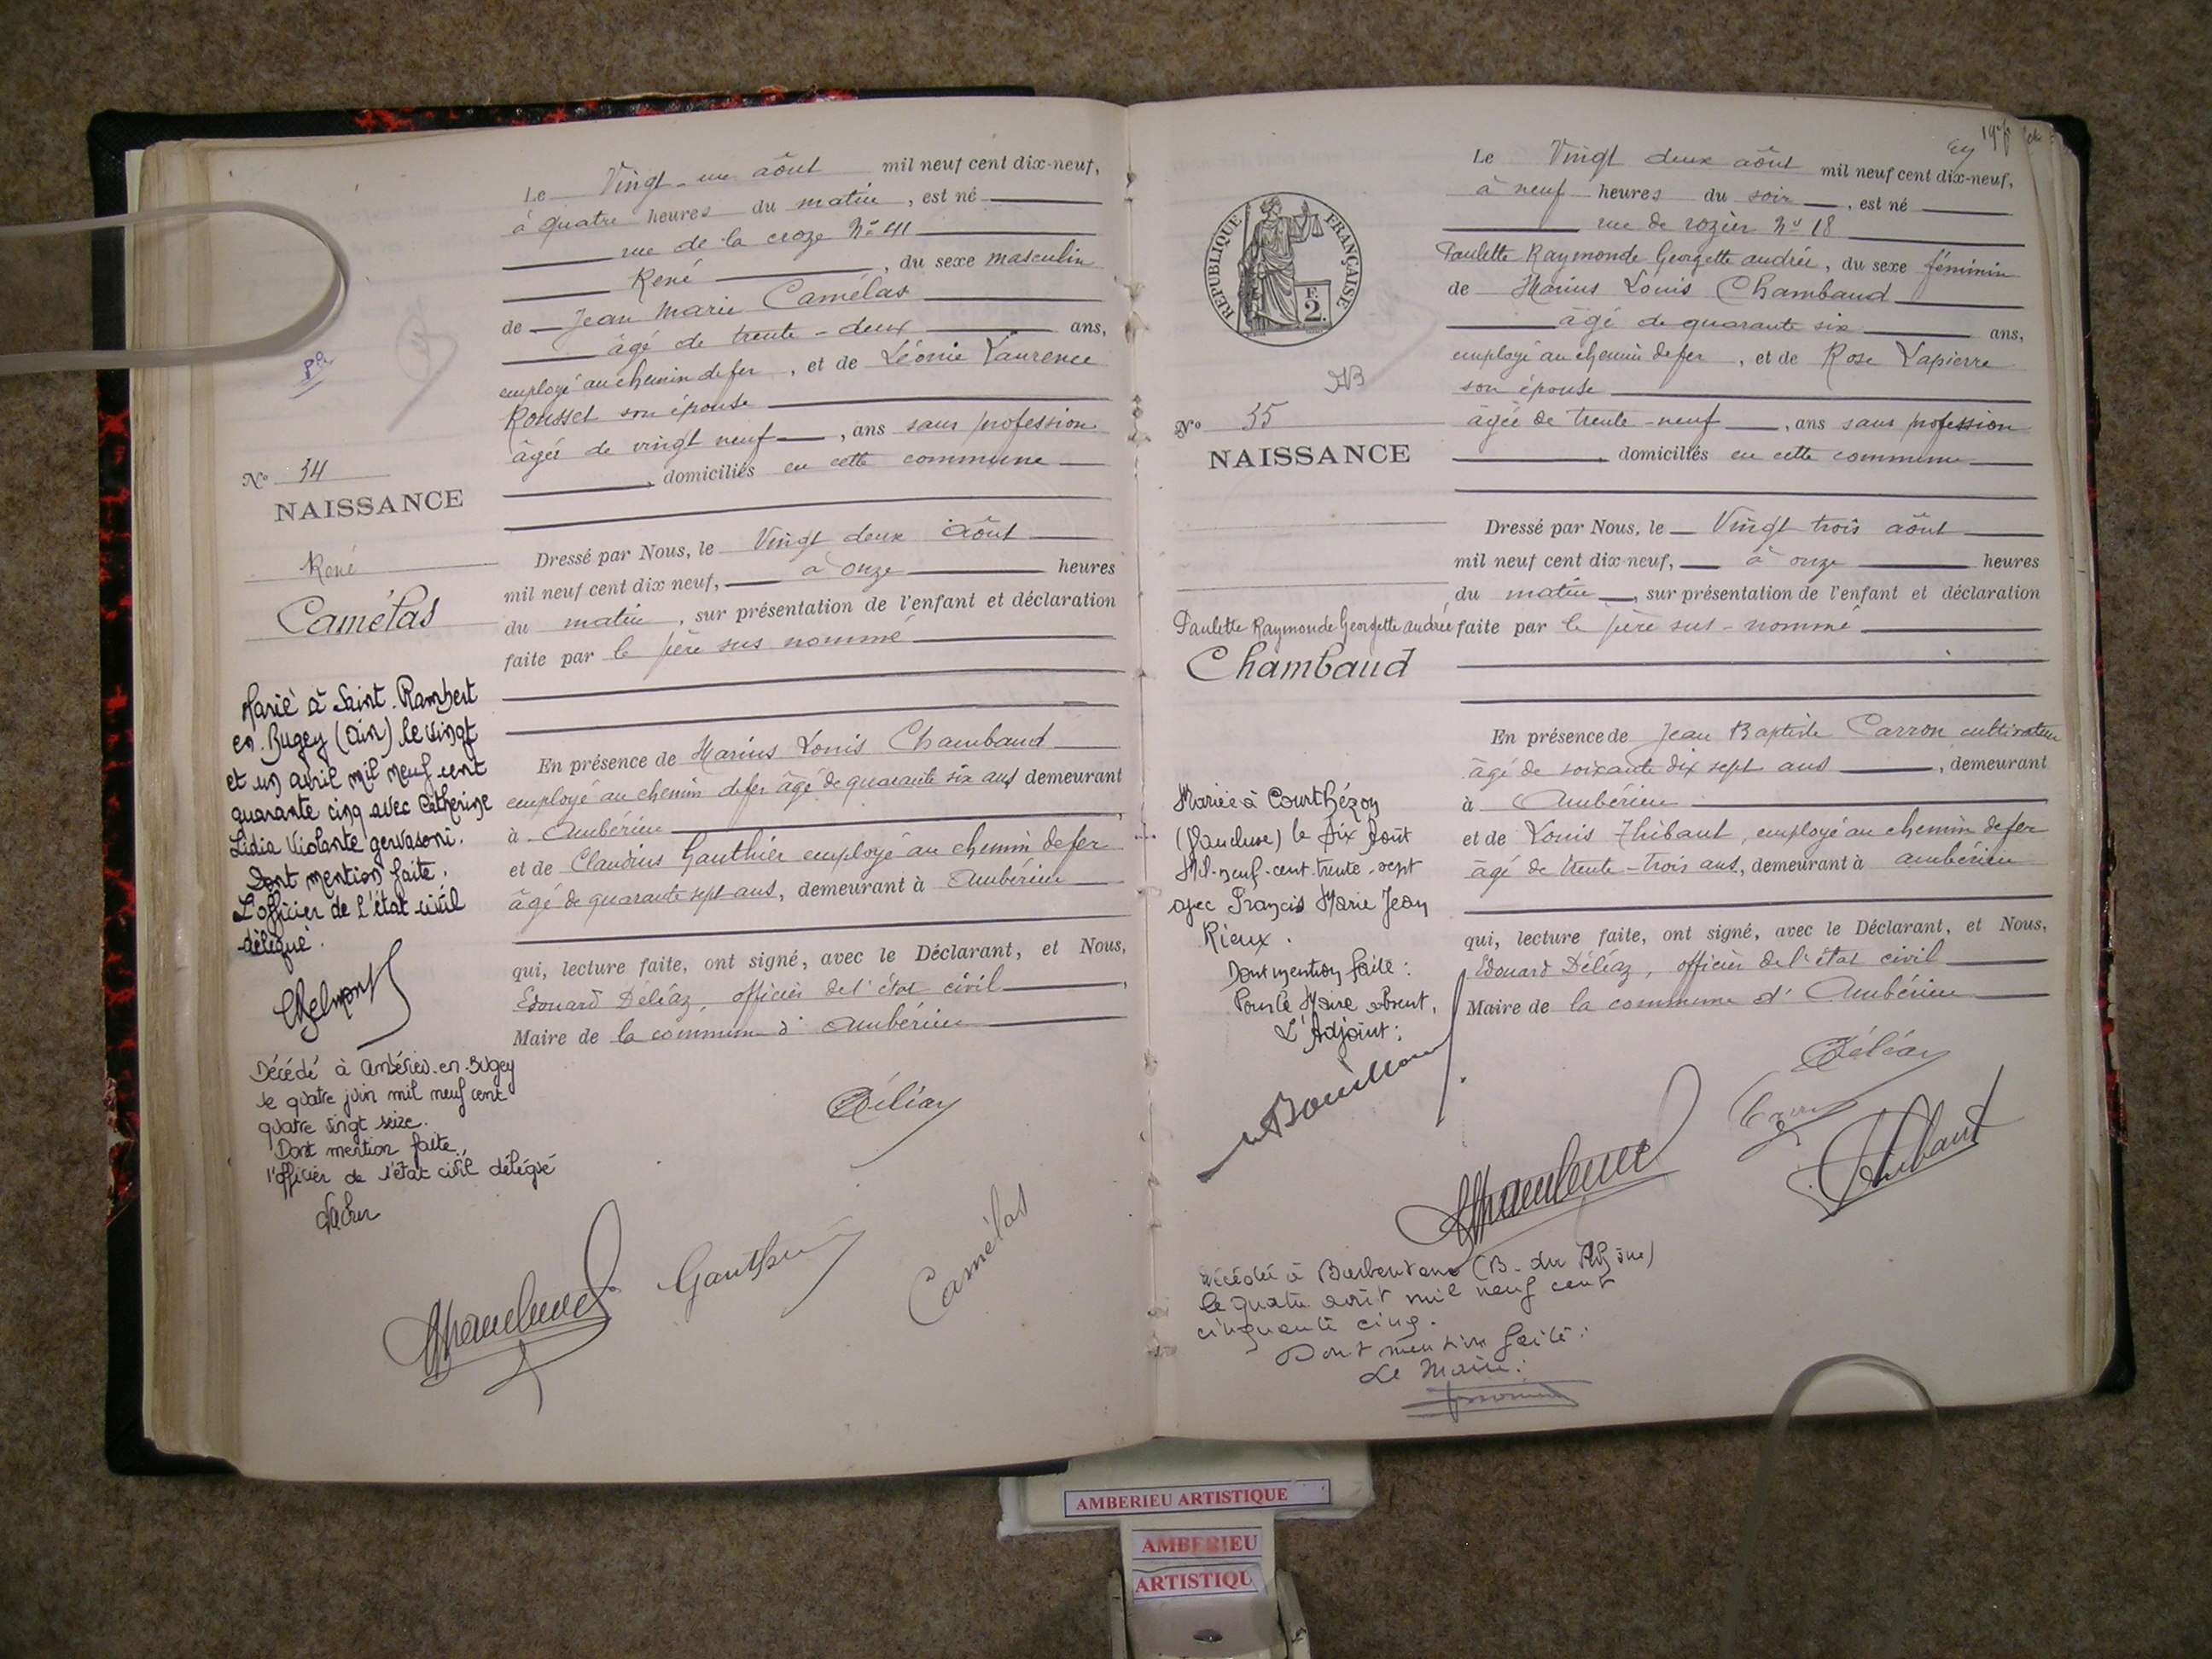 Le Vingt-un août mil neuf cent dix-neuf,
à quatre heures du matin, est né
rue de la croze N° 41
René, du sexe masculin
de Jean Marie Camélas
âgé de trente-deux ans,
employé au chemin de fer, et de Léonie Laurence
Rousset son épouse
âgée de vingt neuf, ans sans profession
, domiciliés en cette commune
N° 34
NAISSANCE
René
Camélas
Dressé par Nous, le Vingt deux août
mil neuf cent dix neuf, à onze heures
du matin, sur présentation de l'enfant et déclaration
faite par le père sus nommé
En présence de Marius Louis Chambaud
employé au chemin de fer âgé de quarante six ans demeurant
à Ambérieu
et de Claudius Gauthier employé au chemin de fer
âgé de quarante sept ans, demeurant à Ambérieu
qui, lecture faite, ont signé, avec le Déclarant, et Nous,
Edouard Déliaz, officier de l'état civil
Maire de la commune d'Ambérieu
Marié à Saint-Rambert
en-Bugey (Ain) le vingt
et un avril mil neuf cent
quarante cinq avec Catherine
Lidia Violante gervasoni.
Dont mention faite.
L'officier de l'état civil
délégué.
Décédé à Ambérieu-en-Bugey
le quatre juin mil neuf cent
quatre vingt seize.
Dont mention faite.
l'officier de l'état civil délégué
Déliaz
Gauthier
Camélas
Le Vingt deux août mil neuf cent dix-neuf,
à neuf heures du soir, est né
rue de rozier N° 18
Paulette Raymonde Georgette andrée, du sexe féminin
de Marius Louis Chambaud
âgé de quarante six ans,
employé au chemin de fer, et de Rose Lapierre
son épouse
âgée de trente-neuf, ans sans profession
domiciliés en cette commune
REPUBLIQUE FRANÇAISE
F.
2.
N° 35
NAISSANCE
Paulette Raymonde Georgette andrée
Chambaud
Dressé par Nous, le Vingt trois août
mil neuf cent dix-neuf, à onze heures
du matin, sur présentation de l'enfant et déclaration
faite par le père sus-nommé
En présence de Jean Baptiste Carron cultivateur
âgé de soixante dix sept ans, demeurant
à Ambérieu
et de Louis Thibaut, employé au chemin de fer
âgé de trente-trois ans, demeurant à ambérieu
qui, lecture faite, ont signé, avec le Déclarant, et Nous,
Edouard Déliaz, officier de l'état civil
Maire de la commune d'Ambérieu
Mariée à Courthézon
(Vaucluse) le dix Août
Mil-neuf-cent-trente-sept
avec Francis Marie Jean
Rieux.
Dont mention faite:
Pour le Maire absent,
L'Adjoint:
Déliaz
Thibaut
Décédée à Barbentane (B. du Rhône)
le quatre août mil neuf cent
cinquante cinq.
Dont mention faite:
Le Maire:
AMBERIEU ARTISTIQUE
AMBERIEU
ARTISTIQU